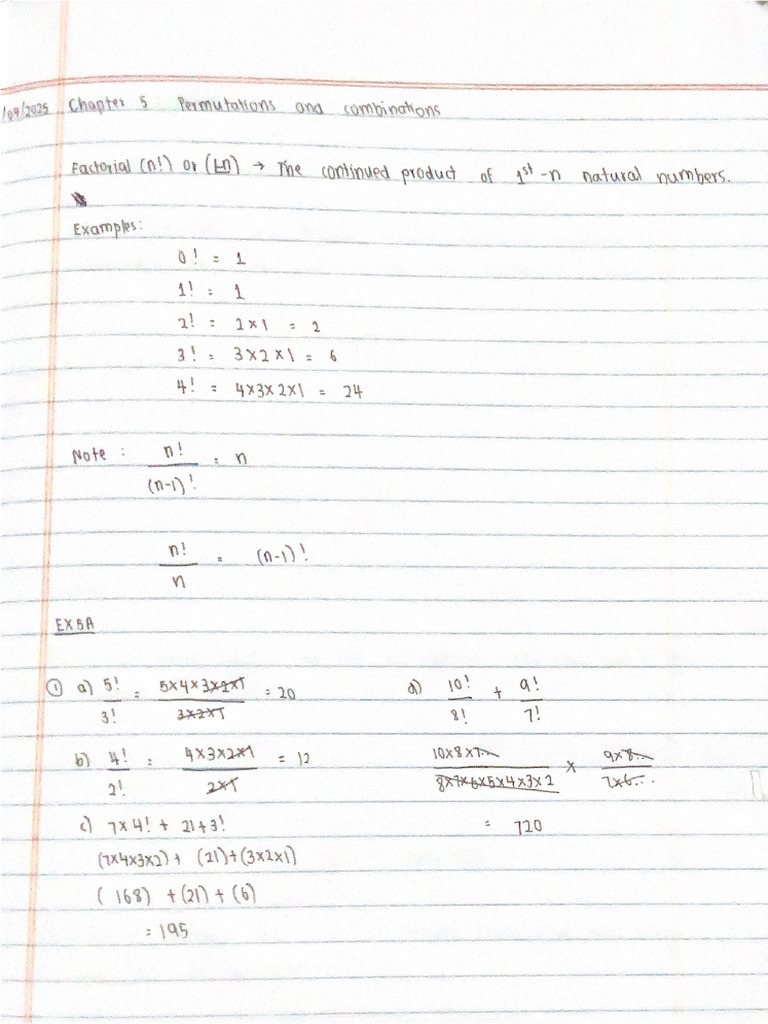 /04/2025 Chapter 5 Permutations and combinations
Factorial (n!) or (∟n) → The continued product of 1st -n natural numbers.
Examples:
0! = 1
1! = 1
2! = 2×1 = 2
3! = 3×2×1 = 6
4! = 4×3×2×1 = 24
Note : n!/(n-1)! = n
n!/n = (n-1)!
EX5A
① a) 5!/3! = 5×4×3×2×1/3×2×1 = 20
b) 4!/2! = 4×3×2×1/2×1 = 12
c) 7×4! + 21+3!
(7×4×3×2)+ (21)+(3×2×1)
(168) +(21)+(6)
= 195
d) 10!/8! + 9!/7!
10×8×7.../8×7×6×5×4×3×2 × 9×8.../7×6...
= 720